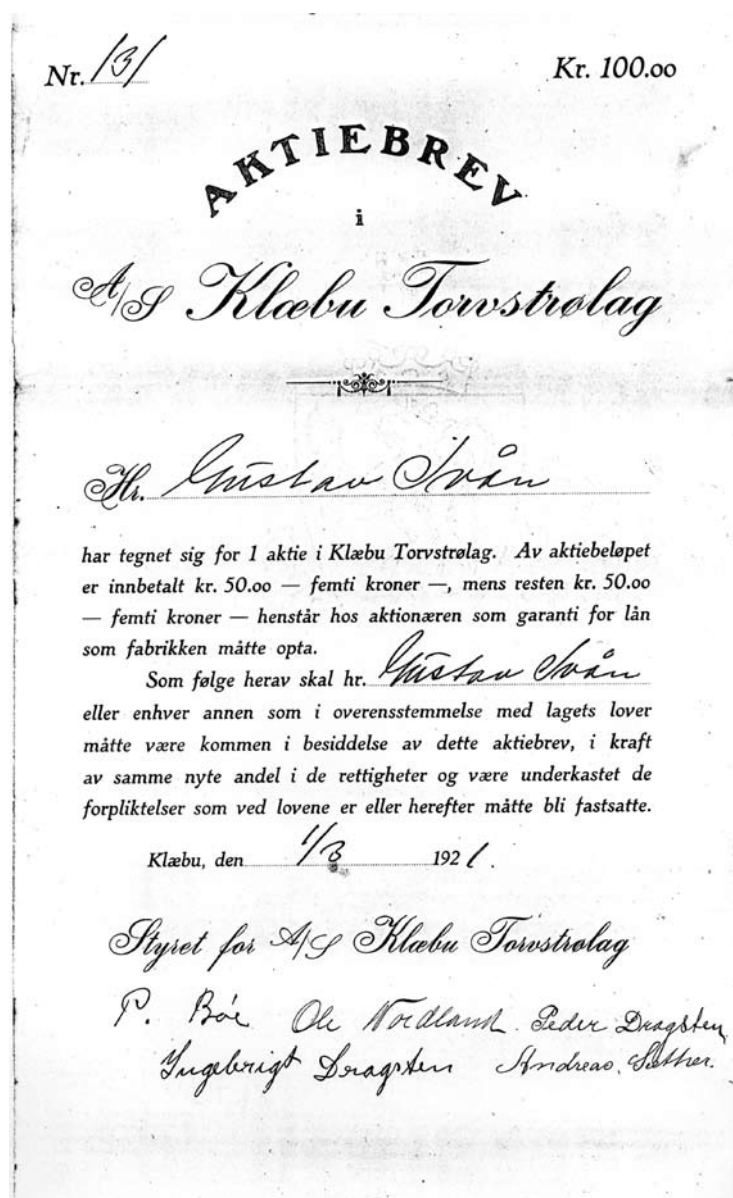 Nr. 131 Kr. 100.00
AKTIEBREV
i
A/S Klæbu Torvstrølag
Hr. Gustav Ivån
har tegnet sig for 1 aktie i Klæbu Torvstrølag. Av aktiebeløpet
er innbetalt kr. 50.00 — femti kroner —, mens resten kr. 50.00
— femti kroner — henstår hos aktionæren som garanti for lån
som fabrikken måtte opta.
Som følge herav skal hr. Gustav Ivån
eller enhver annen som i overensstemmelse med lagets lover
måtte være kommen i besiddelse av dette aktiebrev, i kraft
av samme nyte andel i de rettigheter og være underkastet de
forpliktelser som ved lovene er eller herefter måtte bli fastsatte.
Klæbu, den 1/3 1921.
Styret for A/S Klæbu Torvstrølag
P. Bóe Ole Nordland. Peder Dragsten,
Ingebrigt Dragsten Andreas. Sæther.